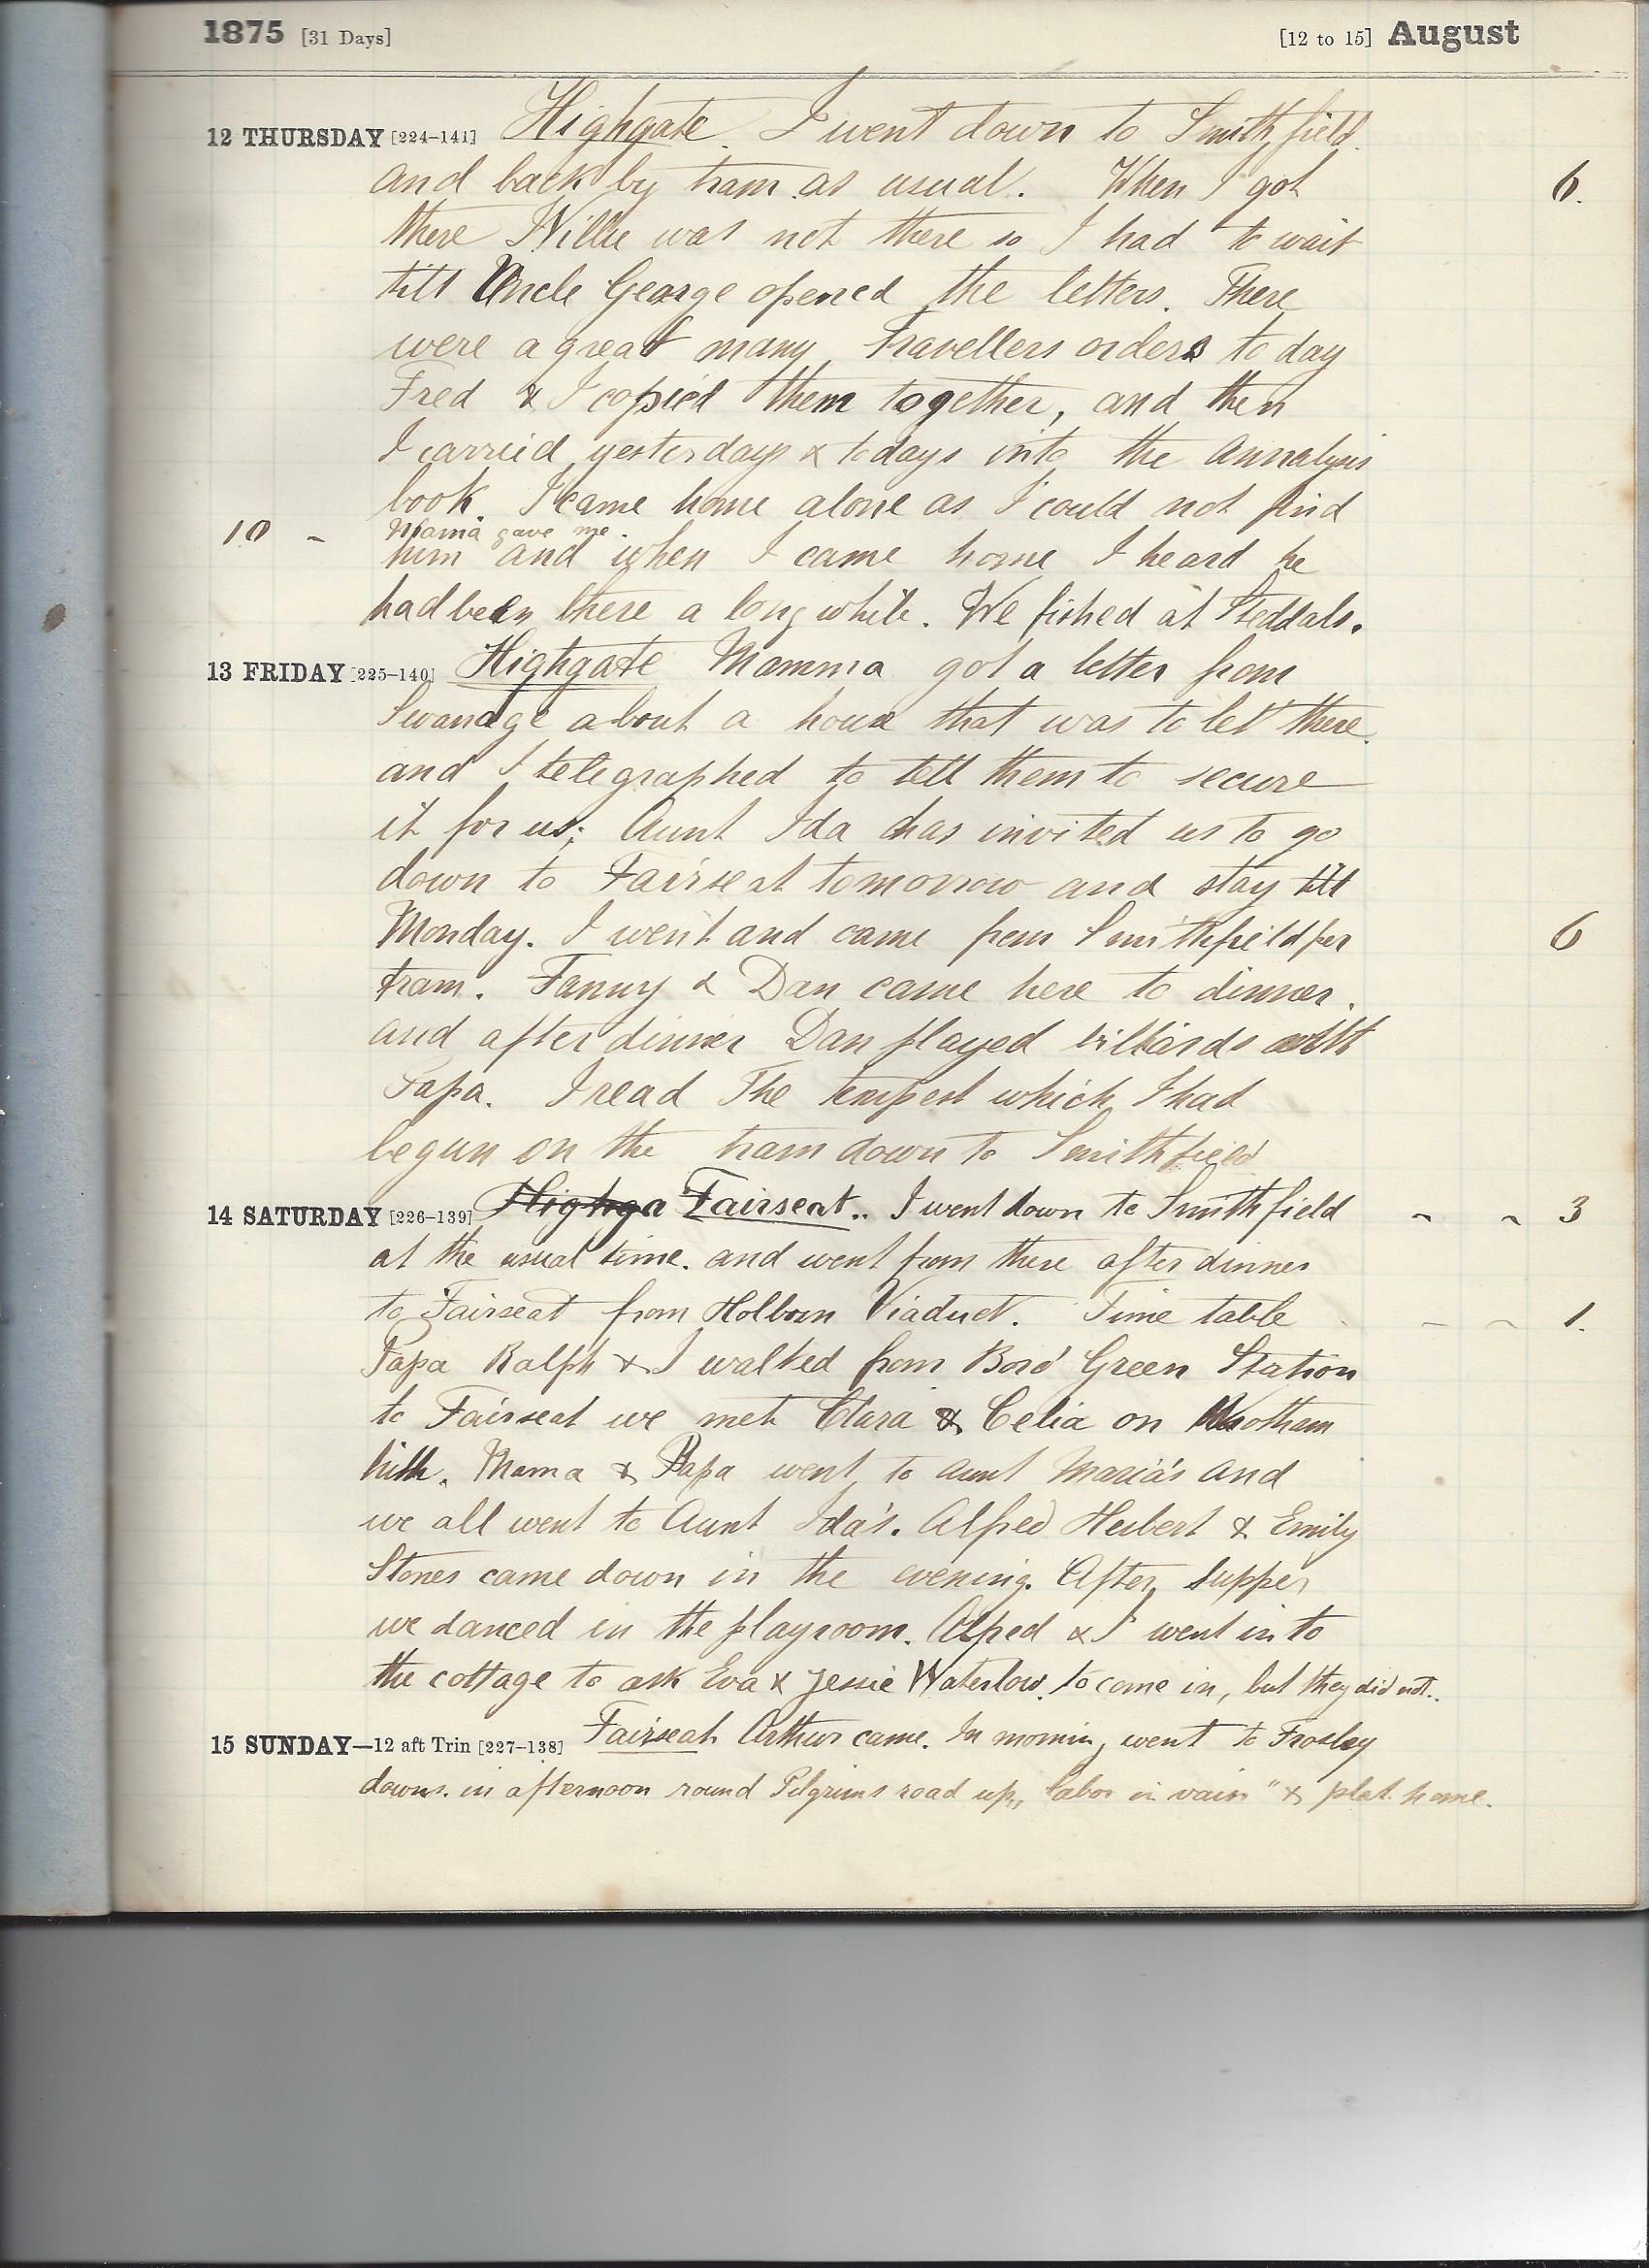 1875 [31 Days] [12 to 15] August
12 THURSDAY [224–141] Highgate. I went down to Smithfield.
and back by tram as usual. When I got 6.
there Willie was not there so I had to wait
till Uncle George opened the letters. There
were a great many Travellers orders to day
Fred & I copied them together, and then
I carried yesterdays & todays into the Annalysis
book. I came home alone as I could not find
10 - Mama gave me.
him and when I came home I heard he
had been there a long while. We fished at Steddals.
13 FRIDAY [225–140] Highgate Mamma got a letter from
Swanage about a house that was to let there.
and I telegraphed to tell them to secure
it for us; Aunt Ida has invited us to go
down to Fairseat tomorrow and stay till
Monday. I went and came from Smithfield per 6
tram. Fanny & Dan came here to dinner.
and after dinner Dan played billiards with
Papa. I read The tempest which I had
begun on the tram down to Smithfield
14 SATURDAY [226–139] Highga Fairseat.. I went down to Smithfield - - 3
at the usual time. and went from there after dinner
to Fairseat from Holborn Viaduct. Time table - - 1.
Papa Ralph & I walked from Boro' Green Station
to Fairseat we met Clara & Celia on Wrotham
hill. Mama & Papa went to Aunt Maria's and
we all went to Aunt Ida's. Alfred Herbert & Emily
Stones came down in the evening. After supper
we danced in the playroom. Alfred & I went in to
the cottage to ask Eva & Jessie Waterlow. to come in, but they did not..
15 SUNDAY—12 aft Trin [227–138] Fairseat. Arthur came. In morning went to Trosley
downs. in afternoon round Pilgrims road up "labor in vain" & plat home.